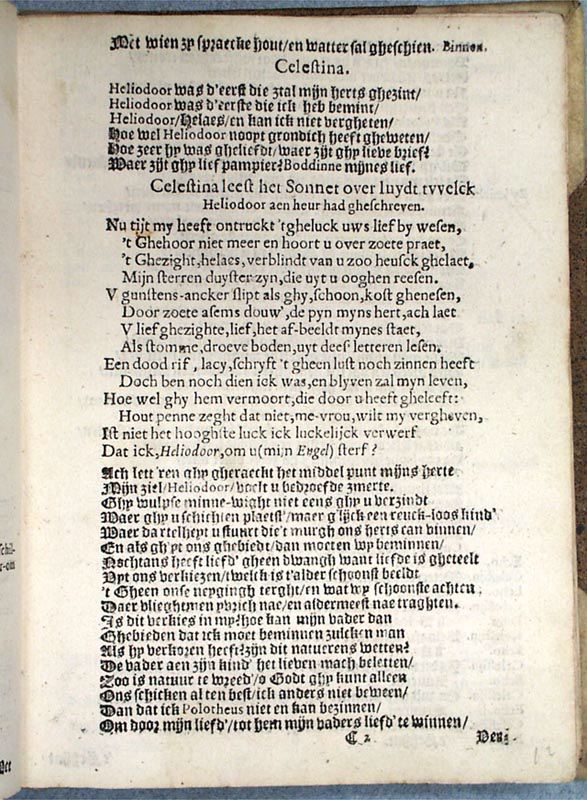 Met wien zy spraecke hout/en watter sal gheschien. Binnen.
Celestina.
Heliodoor was d'eerst die ztal mijn herts ghezint/
Heliodoor was d'eerste die ick heb bemint/
Heliodoor/Helaes/en kan ick niet vergheten/
Hoe wel Heliodoor noopt grondich heeft gheweten/
Hoe zeer hy was gheliefdt/waer zijt ghy lieve brief?
Waer zijt ghy lief pampier? Boddinne mijnes lief.
Celestina leest het Sonnet over luydt tvvelck
Heliodoor aen heur had gheschreven.
Nu tijt my heeft ontruckt 'tgheluck uws lief by wesen,
't Ghehoor niet meer en hoort u over zoete praet,
't Ghezight, helaes, verblindt van u zoo heusck ghelaet,
Mijn sterren duyster zyn, die uyt u ooghen reesen.
V gunstens-ancker slipt als ghy, schoon, kost ghenesen,
Door zoete asems douw', de pyn myns hert, ach laet
V lief ghezighte, lief, het af-beeldt mynes staet,
Als stomme, droeve boden, uyt dees' letteren lesen.
Een dood rif, lacy, schryft 't gheen lust noch zinnen heeft
Doch ben noch dien ick was, en blyven zal myn leven,
Hoe wel ghy hem vermoort, die door u heeft gheleeft:
Hout penne zeght dat niet, me-vrou, wilt my vergheven,
Ist niet het hooghste luck ick luckelijck verwerf
Dat ick, Heliodoor, om u (mijn Engel) sterf?
Ach lett'ren ghy gheraeckt het middel punt mijns herte
Mijn ziel/Heliodoor/voelt u bedroefde zmerte.
Ghy wulpse minne-wight niet eens ghy u verzindt
Waer ghy u schichten plaetst/maer g'lijck een reuck-loos kind'
Waer dartelheyt u stuurt die't murgh ons herts can vinnen/
En als ghy't ons ghebiedt/dan moeten wy beminnen/
Nochtans heeft liefd' gheen dwangh want liefde is gheteelt
Uyt ons verkiezen/twelck is t'alder schoonst beeldt
't Gheen onse neygingh terght/en wat wy schoonste achten
Daer vlieghtmen yvrich nae/en aldermeest nae traghten.
Is dit verkies in my? hoe kan mijn vader dan
Ghebieden dat ick moet beminnen zulcken man
Als hy verkoren heeft? zijn dit natuerens wetten?
De vader aen zijn kind' het lieven mach beletten/
Zoo is natuur te wreed'/o Godt ghy kunt alleen
Ons schicken al ten best/ick anders niet beween/
Dan dat ick Polotheus niet en kan bezinnen/
Om door mijn liefd'/tot hem mijn vaders liefd' te winnen/
C 2